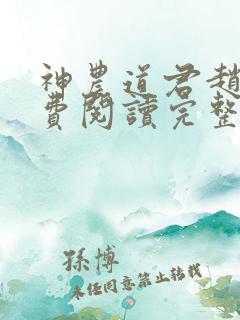 神農道君趙
費閱讀完整
孫博
未經同意禁止轉載